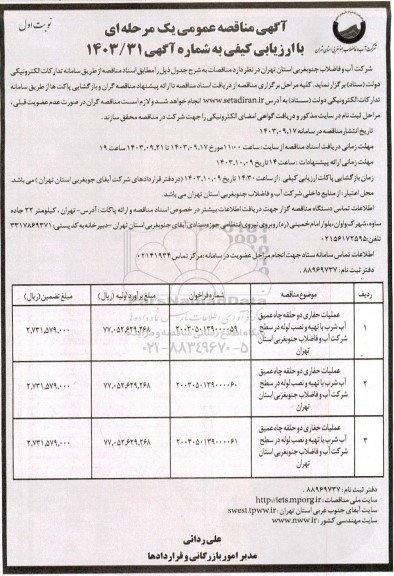 نوبت اول
آگهی مناقصه عمومی یک مرحله ای
با ارزیابی کیفی به شماره آگهی ۱۴۰۳/۳۱
شرکت آب و فاضلاب جنوبغربی استان تهران
شرکت آب و فاضلاب جنوبغربی استان تهران در نظر دارد مناقصات به شرح جدول ذیل را مطابق اسناد مناقصه از طریق سامانه تدارکات الکترونیکی
دولت (ستاد) برگزار نماید. کلیه مراحل برگزاری مناقصه از دریافت اسناد مناقصه تا ارائه پیشنهاد مناقصه گران و بازگشایی پاکت ها از طریق سامانه
تدارکات الکترونیکی دولت (ستاد) به آدرس www.setadiran.ir انجام خواهد شد و لازم است مناقصه گران در صورت عدم عضویت قبلی،
مراحل ثبت نام در سایت مذکور و دریافت گواهی امضای الکترونیکی را جهت شرکت در مناقصه محقق سازند.
تاریخ انتشار مناقصه در سامانه ۱۴۰۳,۰۹,۱۷
مهلت زمانی دریافت اسناد مناقصه از سایت: ساعت ۱۱:۰۰ مورخ ۱۴۰۳,۰۹,۱۷ تا ۱۴۰۳,۰۹,۲۱ ساعت ۱۹
مهلت زمانی ارائه پیشنهادات: ساعت ۱۴ تاریخ ۱۴۰۳,۱۰,۰۹
زمان بازگشایی پاکات ارزیابی کیفی: از ساعت ۱۴:۳۰ تاریخ ۱۴۰۳,۱۰,۰۹ (در دفتر قراردادهای شرکت آبفای جنوبغربی استان تهران) می باشد.
محل اعتبار: از منابع داخلی شرکت آب و فاضلاب جنوبغربی استان تهران می باشد.
اطلاعات تماس دستگاه مناقصه گزار جهت دریافت اطلاعات بیشتر در خصوص اسناد مناقصه و ارائه پاکات: آدرس- تهران، کیلومتر ۲۲ جاده
ساوه، شهرک واوان، بلوار امام خمینی (ره) روبروی نیروی انتظامی حوزه ستادی آبفای جنوبغربی استان تهران- دبیرخانه به کد پستی: ۳۳۱۷۸۶۹۳۷۱
تلفن: ۰۲۱۵۶۱۷۲۵۹۵
اطلاعات تماس سامانه ستاد جهت انجام مراحل عضویت در سامانه: مرکز تماس ۰۲۱۴۱۹۳۴
دفتر ثبت نام: ۸۸۹۶۹۷۳۷
ردیف موضوع مناقصه شماره فراخوان مبلغ برآورد اولیه (ریال) مبلغ تضمین (ریال)
۱ عملیات حفاری دو حلقه چاه عمیق آب شرب با تهیه و نصب لوله در سطح شرکت آب و فاضلاب جنوبغربی استان تهران ۲۰۰۳۰۵۰۱۳۹۰۰۰۰۵۹ ۷۷,۰۵۲,۶۲۹,۲۶۸ ۲,۷۳۱,۵۷۹,۰۰۰
۲ عملیات حفاری دو حلقه چاه عمیق آب شرب با تهیه و نصب لوله در سطح شرکت آب و فاضلاب جنوبغربی استان تهران ۲۰۰۳۰۵۰۱۳۹۰۰۰۰۶۰ ۷۷,۰۵۲,۶۲۹,۲۶۸ ۲,۷۳۱,۵۷۹,۰۰۰
۳ عملیات حفاری دو حلقه چاه عمیق آب شرب با تهیه و نصب لوله در سطح شرکت آب و فاضلاب جنوبغربی استان تهران ۲۰۰۳۰۵۰۱۳۹۰۰۰۰۶۱ ۷۷,۰۵۲,۶۲۹,۲۶۸ ۲,۷۳۱,۵۷۹,۰۰۰
۰۲۱-۸۸۳۴۹۶۷۰-۵
دفتر ثبت نام: ۸۸۹۶۹۷۳۷.
سایت ملی مناقصات: http://iets.mporg.ir
سایت آبفای جنوب غربی استان تهران: swest.tpww.ir
سایت مهندسی کشور: www.nww.ir
علی ردائی
مدیر امور بازرگانی و قراردادها